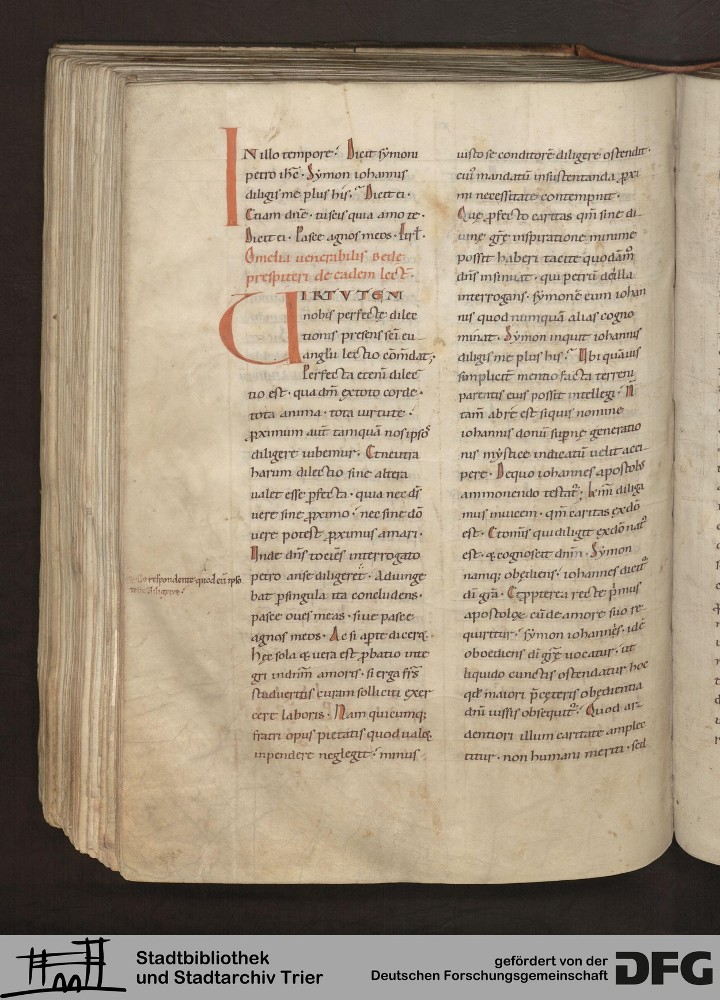 IN illo tempore. Dicit symoni
petro ihc. Symon iohannis
diligis me plus his. Dicit ei.
Etiam dne. tu scis quia amo te.
Dicit ei. Pasce agnos meos.
Omelia venerabilis Bede
presbiteri de eadem lect.
VIRTUTEM
nobis perfectę dilec
tionis presens sci eu
anglii lectio cōmdat;
Perfecta etenī dilec
tio est. qua dm̄ ex toto corde.
tota anima. tota uirtute.
ꝓximum aut tamquā nos ipsos
diligere iubemur. Et neutra
harum dilectio sine altera
ualet esse ꝑfecta. quia nec ds̄
uere sine ꝓximo. nec sine dō
uere potest ꝓximus amari.
Unde dn̄s tociēs interrogato
petro an se diligeret. Adiunge
bat ꝑ singula ita concludens.
pasce oues meas. siue pasce
agnos meos. Ac si aꝑte diceret.
Hęc sola & uera est ꝓbatio inte
gri in dn̄m amoris. si erga frs̄
studueritis curam solliciti exer
cere laboris. Nam quicumq;
fratri opus pietatis quod ualet.
inpendere neglegit. minus
respondente quod eū ipse
diligeret
iusto se conditorē diligere ostendit.
eius mandatū in sustentanda ꝓxi
mi necessitate contempnit.
Que ꝓfecto caritas qm̄ sine di
uine grē inspiratione minime
possit haberi tacite quodam̄
dn̄s insinuat. qui petrū de illa
interrogans. symonē eum iohan
nis quod numquā alias cogno
minat. Symon inquit iohannis
diligis me plus his. Ubi quāuis
simplicit mentio facta terreni
parentis eius possit intellegi. N
tam̄ ab re est si quis nomine
iohannis donū supnę generatio
nis mystice indicatū uelit acci
pere. De quo iohannes apostolus
ammonendo testat; km̄i diliga
mus inuicem. qm̄ caritas ex dō
est. Et omīs qui diligit ex dō nat
est. & cognoscit dnm̄. Symon
namq; obediens. iohannes dicit
di grā. Et ꝓpterea recte p̄mus
apostolox cū de amore suo re
quiritur. symon iohannes. idē
oboediens di grē uocatur. ut
liquido cunctis ostendatur hoc
qd̄ maiori p̄ ceteris obedientia
dn̄i iussis obsequit. Quod ar
dentiori illum caritate amplec
titur. non humani meriti. sed
Stadtbibliothek
und Stadtarchiv Trier
gefördert von der
Deutschen Forschungsgemeinschaft
DFG